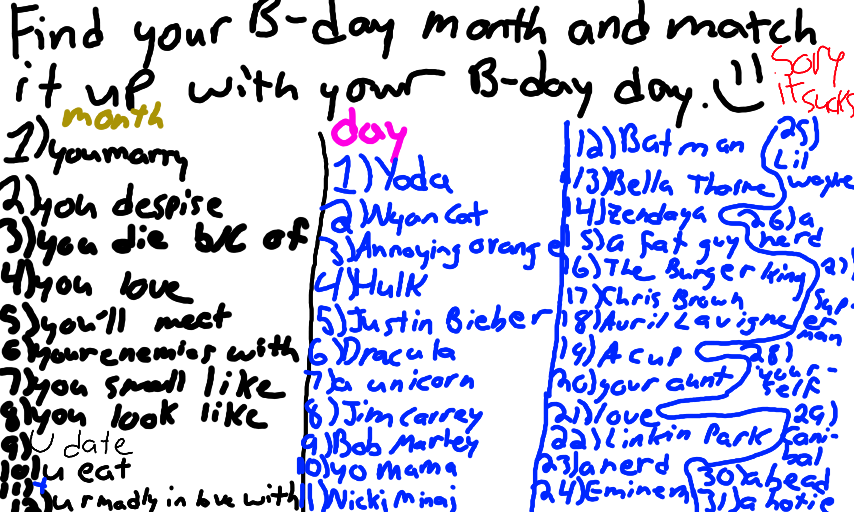 Find your B-day month and match
it up with your B-day day.
Sory
it sucks
month
1) you marry
2) you despise
3) you die b/c of
4) you love
5) you'll meet
6) your enemies with
7) you smell like
8) you look like
9) U date
10) u eat
11)
12) u r madly in love with
day
1) Yoda
2) Nyan Cat
3) Annoying orange
4) Hulk
5) Justin Bieber
6) Dracula
7) a unicorn
8) Jim Carrey
9) Bob Marley
10) yo mama
11) Nicki minaj
12) Bat man
13) Bella Thorne
14) Zendaya
15) a fat guy
16) The Burger King
17) Chris Brown
18) Avril Lavigne
19) A cup
20) your aunt
21) love
22) Linkin Park
23) a nerd
24) Eminem
25)
Lil
wayne
26) a
nerd
27)
Sup-
er
man
28)
your-
self
29)
Cani-
bal
30) a head
31) a hotie